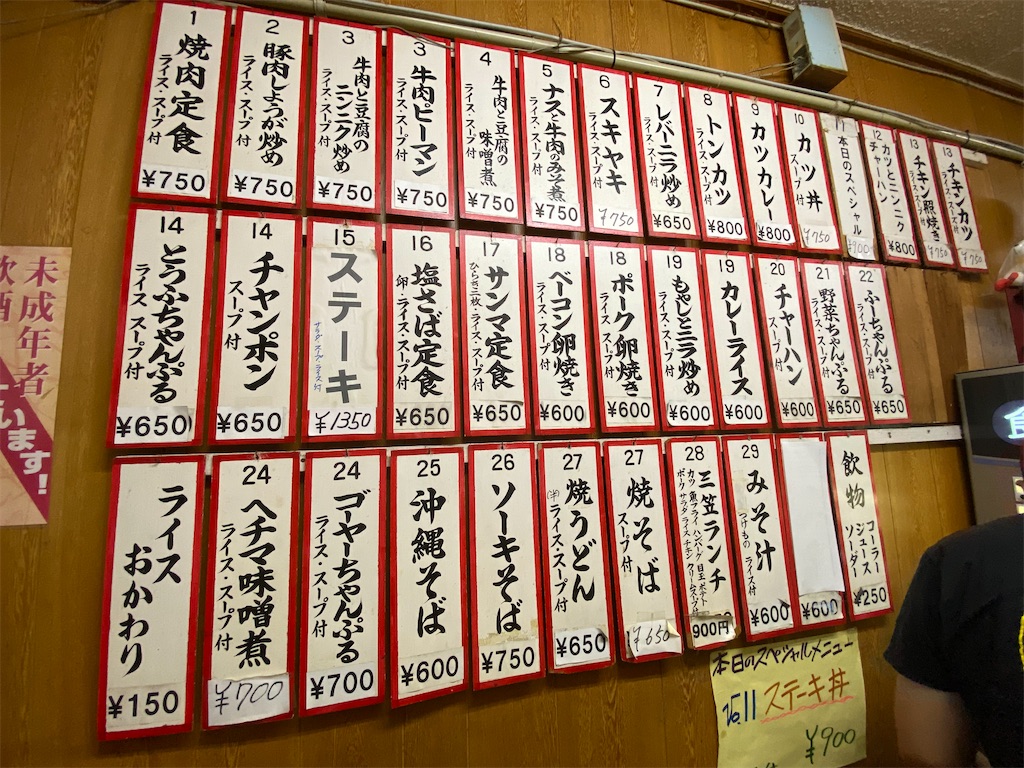 1
焼肉定食
ライス・スープ付
¥750
2
豚肉しょうが炒め
ライス・スープ付
¥750
3
牛肉と豆腐の
ニンニク炒め
ライス・スープ付
¥750
3
牛肉ピーマン
ライス・スープ付
¥750
4
牛肉と豆腐の
味噌煮
ライス・スープ付
¥750
5
ナスと牛肉のみそ煮
ライス・スープ付
¥750
6
スキヤキ
ライス・スープ付
¥750
7
レバーニラ炒め
ライス・スープ付
¥650
8
トンカツ
ライス・スープ付
¥800
9
カツカレー
¥800
10
カツ丼
スープ付
¥750
11
本日のスペシャル
12
カツとニンニク
チャーハン
¥800
13
チキン照焼き
ライス・スープ付
¥750
13
チキンカツ
ライス・スープ付
¥750
14
とうふちゃんぷる
ライス スープ付
¥650
14
チャンポン
スープ付
¥650
15
ステーキ
サラダ スープ ライス付
¥1350
16
塩さば定食
卵・ライス・スープ付
¥650
17
サンマ定食
ひらき二枚・ライス・スープ付
¥650
18
ベーコン卵焼き
ライス・スープ付
¥600
18
ポーク卵焼き
ライス・スープ付
¥600
19
もやしとニラ炒め
ライス・スープ付
¥600
19
カレーライス
¥600
20
チャーハン
スープ付
¥600
21
野菜ちゃんぷる
ライス・スープ付
¥650
22
ふーちゃんぷる
ライス・スープ付
¥650
ライス
おかわり
¥150
24
ヘチマ味噌煮
ライス・スープ付
¥700
24
ゴヤーちゃんぷる
ライス・スープ付
¥700
25
沖縄そば
¥600
26
ソーキそば
¥750
27
焼うどん
ライス・スープ付
¥650
27
焼そば
スープ付
¥650
28
三笠ランチ
カツ 魚フライ ハンバーグ 目玉 ポテト
ポーク サラダ ライス チキン クリームスープ付
900円
29
みそ汁
つけもの ライス付
¥600
¥600
飲物
コーラー
ジュース
ソーダー
¥250
本日のスペシャルメニュー
No.11 ステーキ丼
¥900
未成年者
飲酒
います!
食